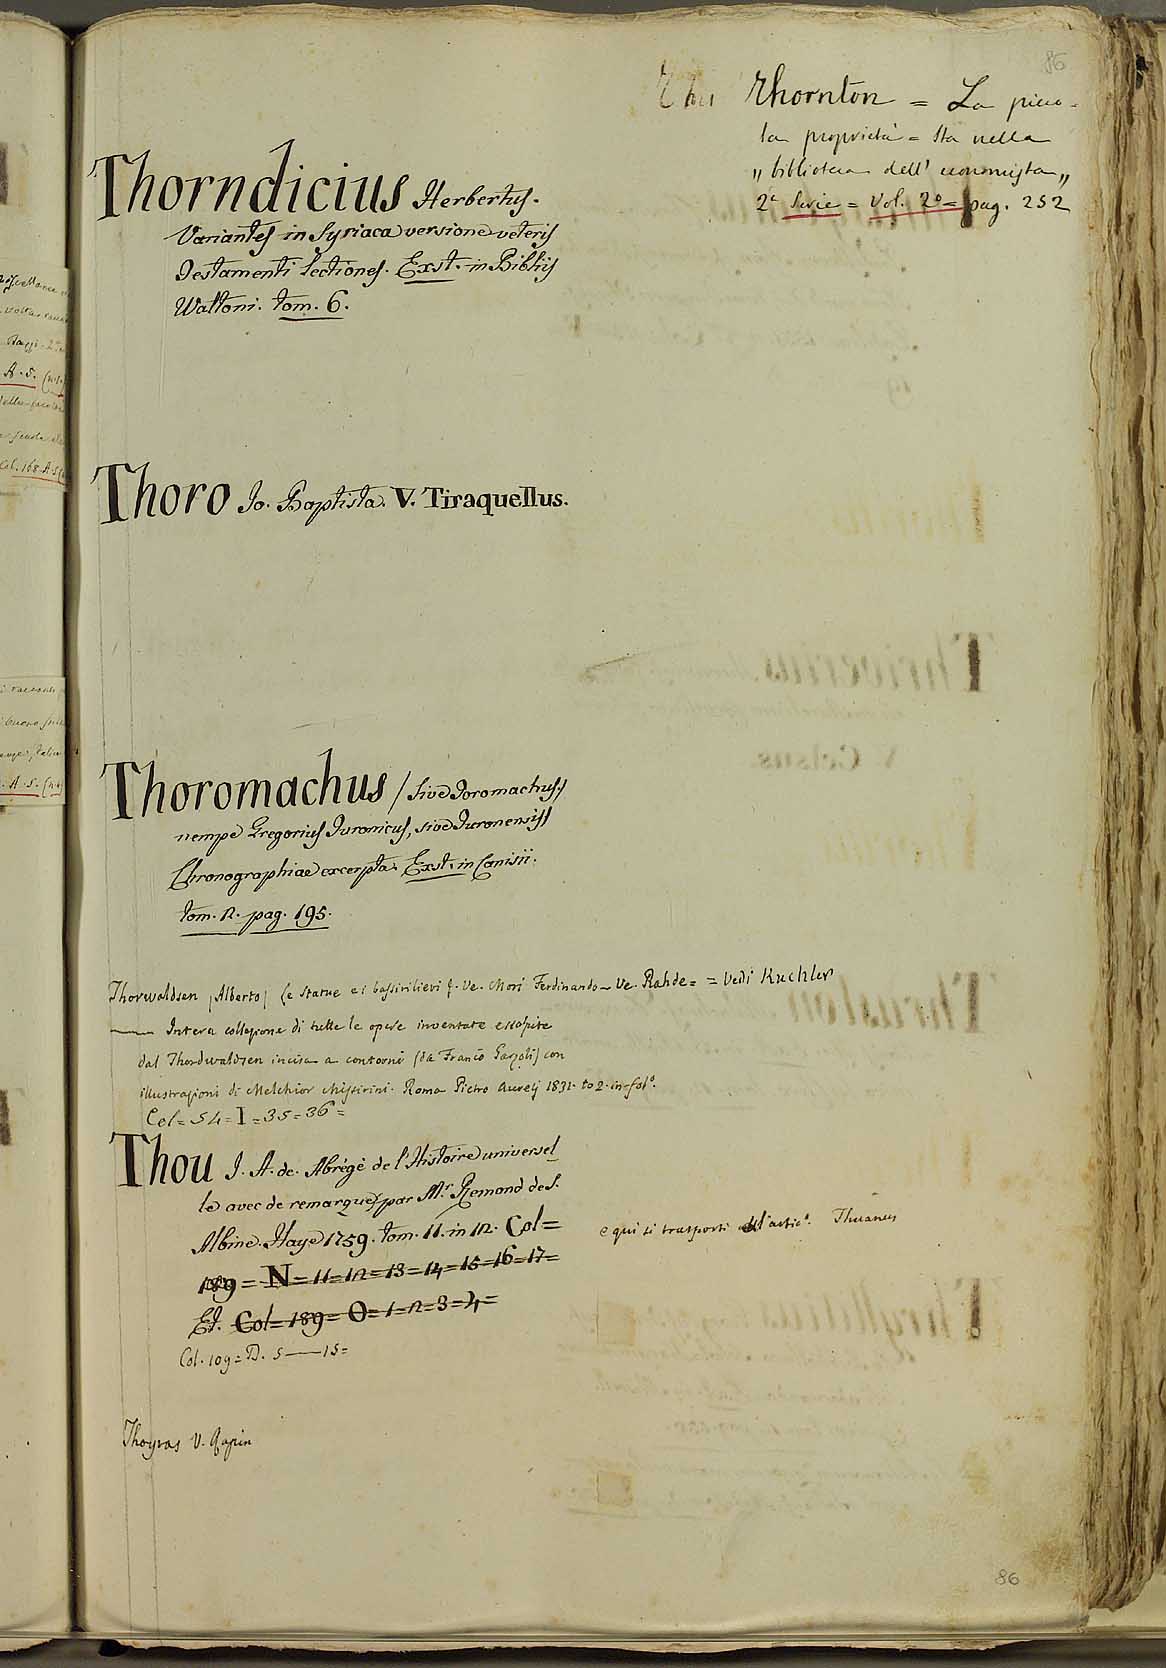 86
Thornton = La picco-
la proprietà = Sta nella
„ biblioteca dell' economista „
2ª Serie = Vol. 2º = pag. 252
Thorndicius Herbertus.
Variantes in Syriaca versione veteris
Testamenti Lectiones. Exst. in Bibliis
Waltoni. tom. 6.
Thoro Jo. Baptista. V. Tiraquellus.
Thoromachus / sive Toromachus /
nempe Gregorius Turonicus, sive Turonensis /
Chronographiae excerpta. Exst. in Canisii.
tom. 2. pag. 195.
Thorwaldsen (Alberto) Le statue e i bassirilievi Mori Ferdinando = Rahde = = Vedi Kuchler
Intera collezione di tutte le opere inventate e scolpite
dal Thordwaldzen incisa a contorni (da Franco Garzoli) con
illustrazioni di Melchior Missirini. Roma Pietro Aurelj 1831. to 2. in-folº.
Col = 54 = I = 35 = 36 =
Thou J. A. de. Abrégé de l'Histoire universel
le avec de remarques par Mr. Remond de S.
Albine. Haye 1759. tom. 11. in 12. Col =
189 = N = 11 = 12 = 13 = 14 = 15 = 16 = 17 =
Et. Col = 189 = O = 1 = 2 = 3 = 4 =
e qui si trasporti all'artic.º Thuanus
Col. 109 = D. 5 — 15 =
Thoyras V. Rapin
86